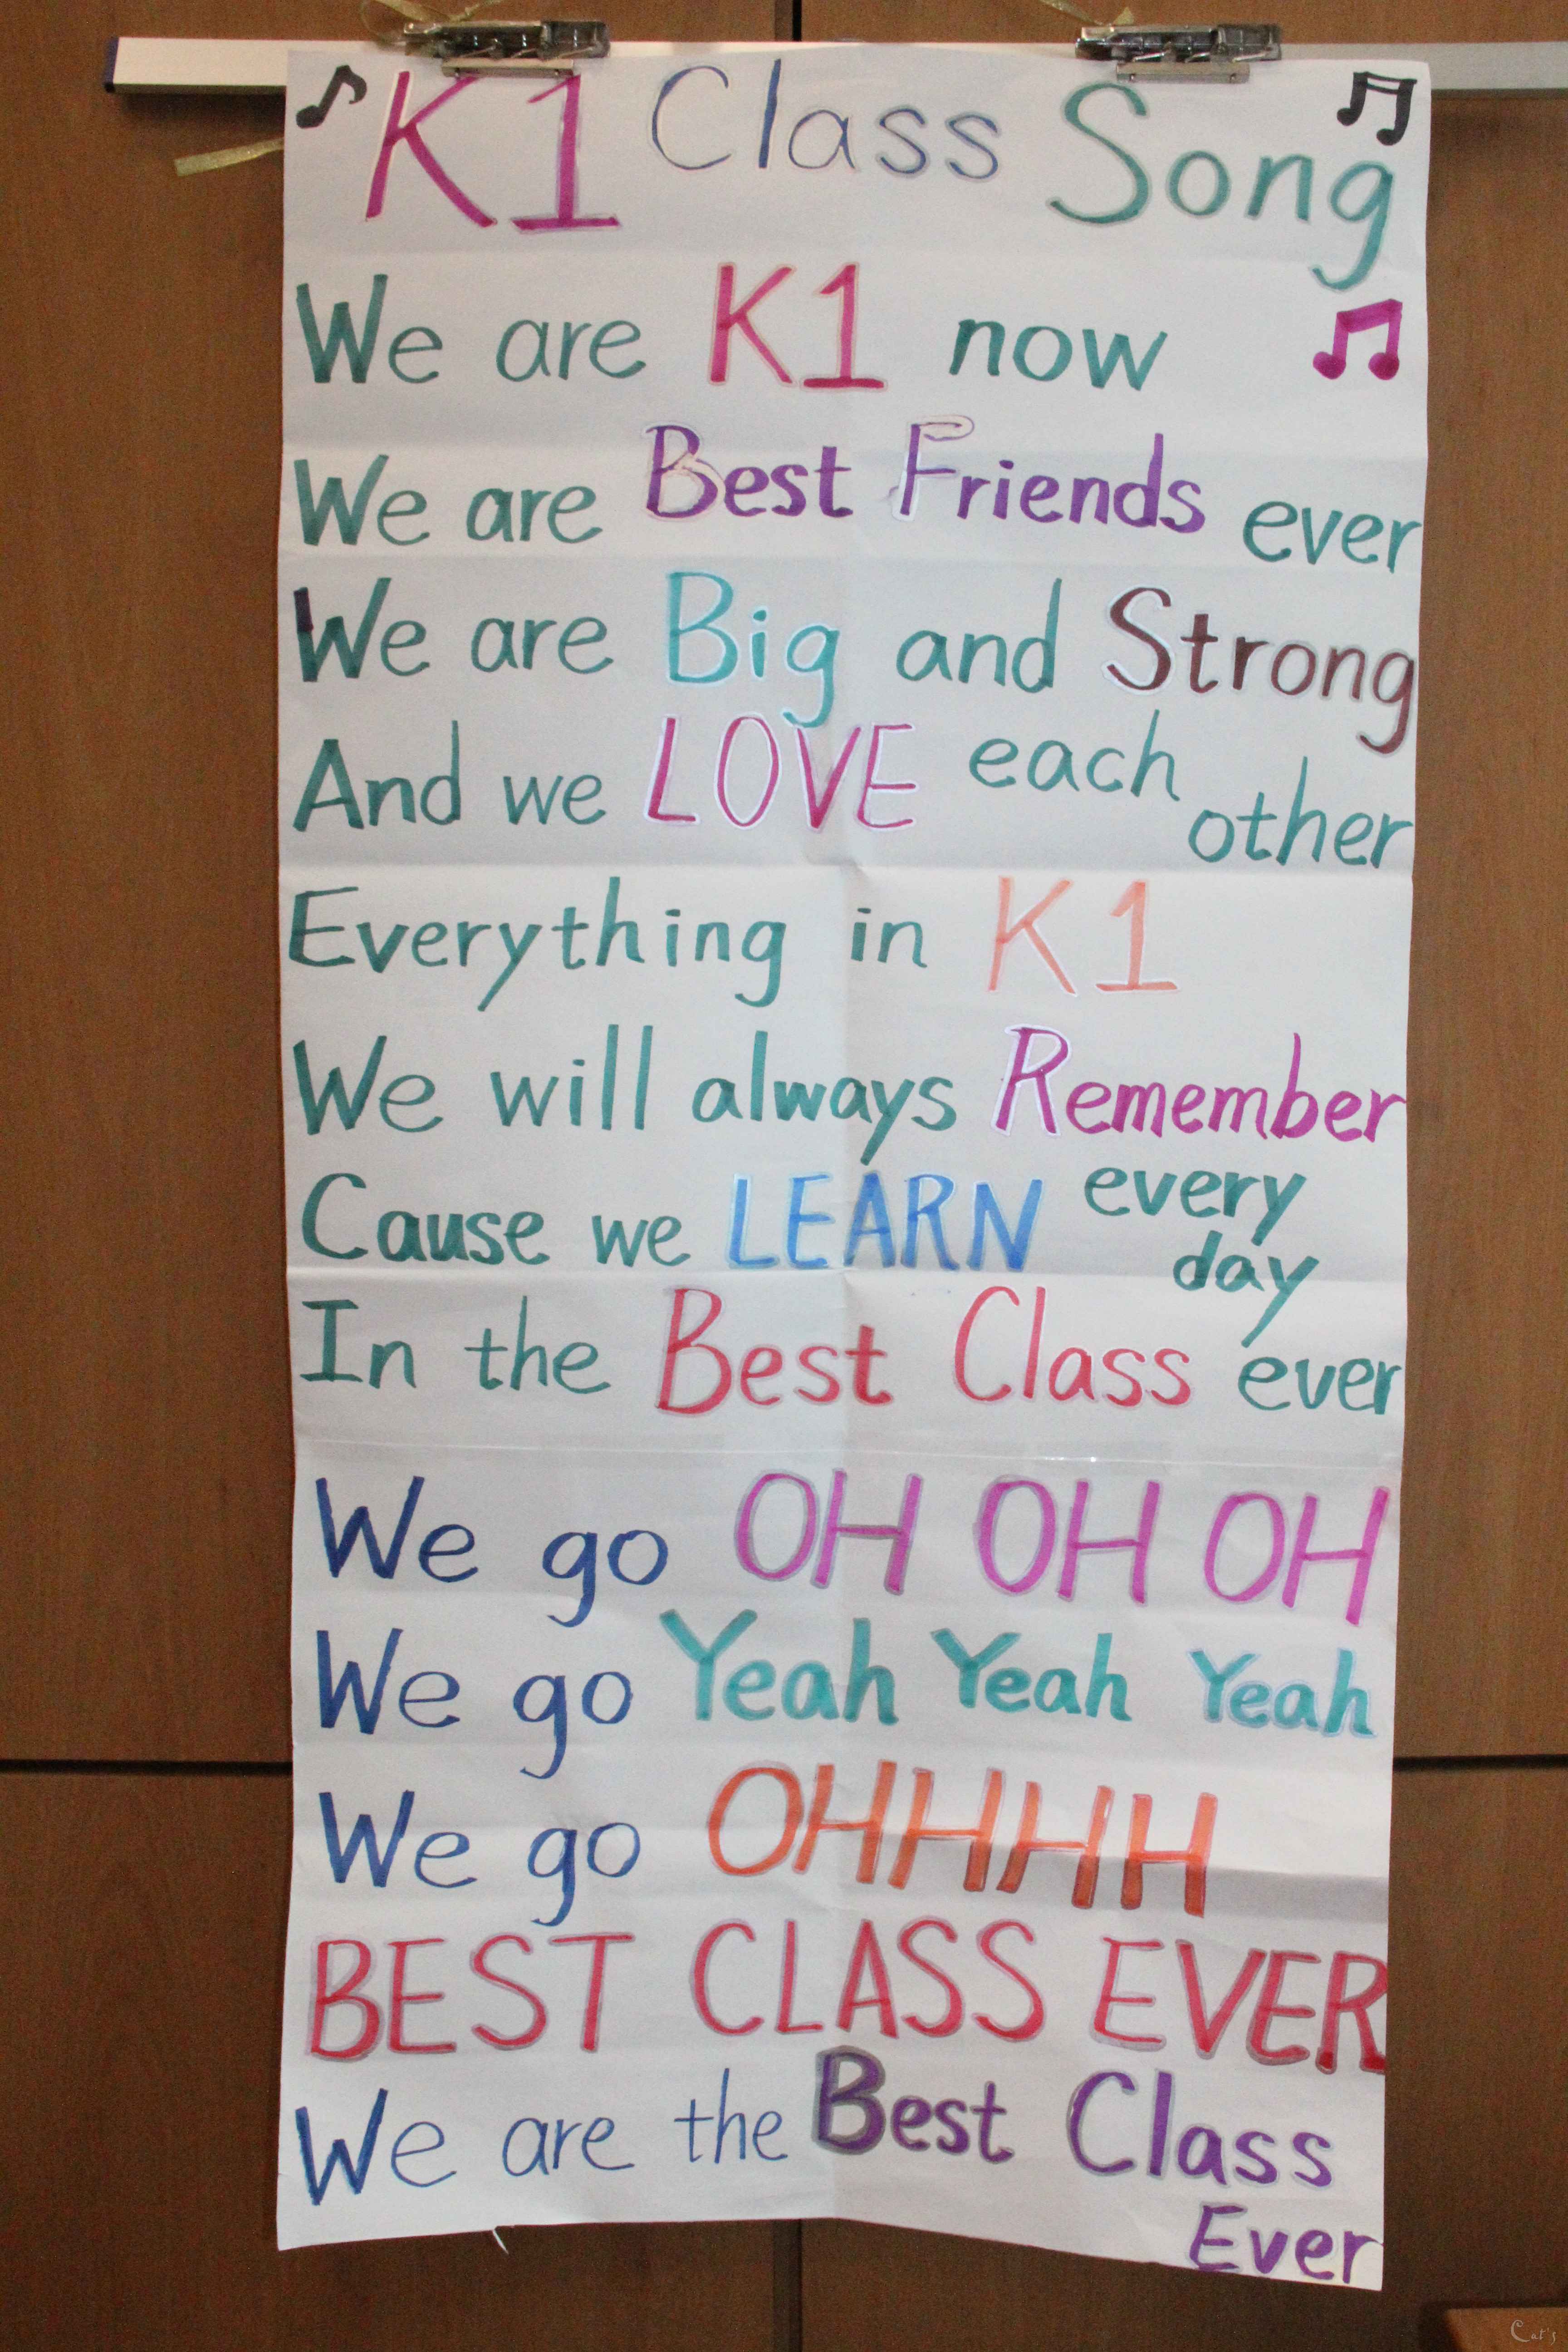 K1 Class Song
We are K1 now
We are Best Friends ever
We are Big and Strong
And we LOVE each other
Everything in K1
We will always Remember
Cause we LEARN every day
In the Best Class ever
We go OH OH OH
We go Yeah Yeah Yeah
We go OHHHH
BEST CLASS EVER
We are the Best Class
Ever
Cat's